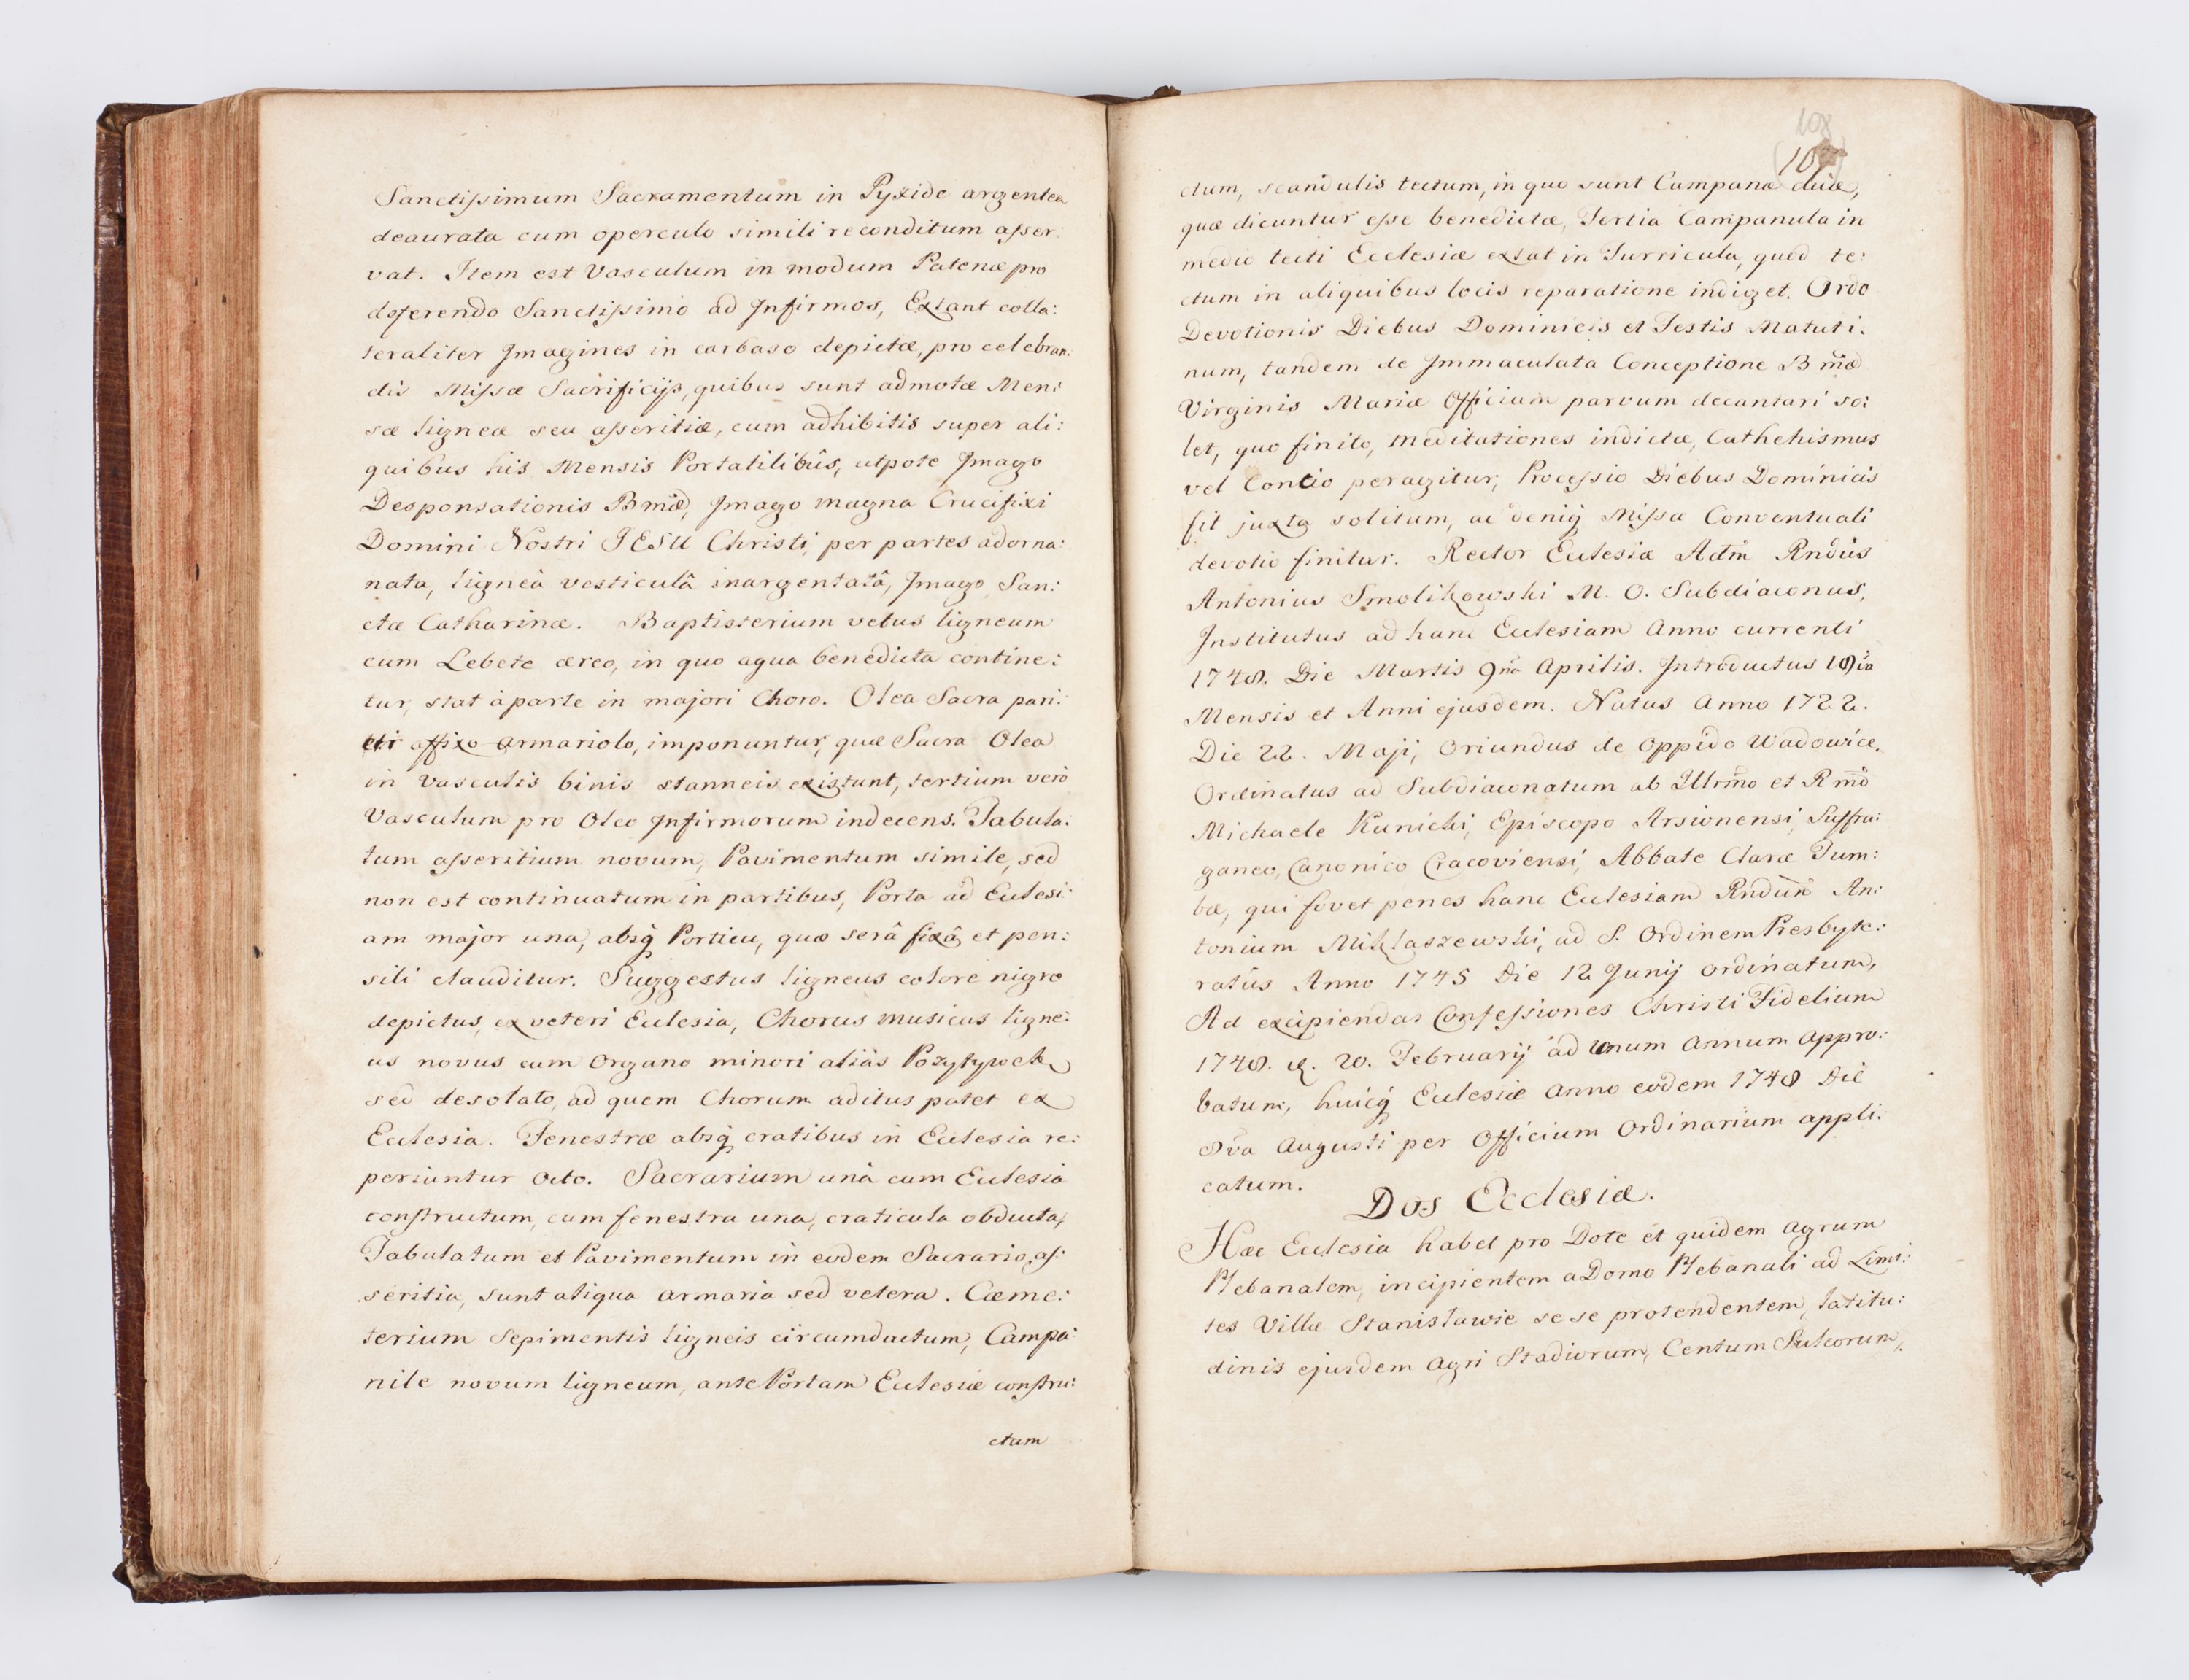 Sanctissimum Sacramentum in Pyxide argentea
deaurata cum operculo simili reconditum asser:
vat. Item est Vasculum in modum Patenæ pro
deferendo Sanctissimo ad Infirmos, Extant colla:
teraliter Imagines in carbaso depictæ, pro celebran:
dis Missæ Sacrificijs, quibus sunt admotæ Men:
sæ ligneæ seu asseritiæ, cum adhibitis super ali:
quibus his Mensis Portatilibûs, utpote Imago
Desponsationis Bmæ, Imago magna Crucifixi
Domini Nostri JESU Christi, per partes adorna:
nata, ligneâ vesticulâ inargentatâ, Imago San:
ctæ Catharinæ. Baptisterium vetus ligneum
cum Lebete æreo, in quo aqua benedicta contine:
tur, stat à parte in majori Choro. Olea Sacra pari:
eti affixo armariolo, imponuntur, quæ Sacra Olea
in vasculis binis stanneis existunt, tertium verò
Vasculum pro Oleo Infirmorum indecens. Tabula:
tum asseritium novum, Pavimentum simile, sed
non est continuatum in partibus, Porta ad Ecclesi:
am major una, absq Porticu, quæ serâ fixâ et pen:
sili clauditur. Suggestus ligneus colore nigro
depictus, ex veteri Ecclesia, Chorus musicus ligne:
us novus cum Organo minori aliàs Pozytywek
sed desolato, ad quem Chorum aditus patet ex
Ecclesia. Fenestræ absq cratibus in Ecclesia re:
periuntur Octo. Sacrarium unà cum Ecclesia
constructum, cum fenestra una, craticula obducta,
Tabulatum et Pavimentum in eodem Sacrario, as:
seritia, sunt aliqua armaria sed vetera. Cæme:
terium Sepimentis ligneis circumductum, Campa
nile novum ligneum, ante Portam Ecclesiæ constru:
ctum
108
107
ctum, scandulis tectum, in quo sunt Campanæ duæ,
quæ dicuntur esse benedictæ, Tertia Campanula in
medio tecti Ecclesiæ extat in Turricula, quod te:
ctum in aliquibus locis reparatione indiget. Ordo
Devotionis Diebus Dominicis et Festis Matuti:
num, tandem de Immaculata Conceptione Bmæ
Virginis Mariæ Officium parvum decantari so:
let, quo finito, meditationes indictæ, Cathehismus
vel Concio peragitur, Processio Diebus Dominicis
fit juxta solitum, ac deniq Missa Conventuali
devotio finitur. Rector Ecclesiæ Adm Rndûs
Antonius Smolikowski M. O. Subdiaconus,
Institutus ad hanc Ecclesiam Anno currenti
1748. Die Martis 9na Aprilis. Introductus 18va
Mensis et Anni ejusdem. Natus Anno 1722.
Die 22. Maji, Oriundus de Oppido Wadowice.
Ordinatus ad Subdiaconatum ab Illrmo et Rmo
Michaele Kunicki, Episcopo Arsionensi, Suffra:
ganeo, Canonico Cracoviensi, Abbate Claræ Tum:
bæ, qui fovet penes hanc Ecclesiam Rndum An:
tonium Miklaszewski, ad S. Ordinem Presbyte:
ratûs Anno 1745 Die 12 Junij ordinatum,
Ad excipiendas Confessiones Christi Fidelium
1748. d. 20. Februarij ad Unum Annum appro:
batum, huicq Ecclesiæ Anno eodem 1748 Die
8va Augusti per Officium Ordinarium appli:
catum.
Dos Ecclesiæ.
Hæc Ecclesia habet pro Dote et quidem agrum
Plebanalem, incipientem a Domo Plebanali ad Limi:
tes Villæ Stanisławie se se protendentem, latitu:
dinis ejusdem agri Stadiorum, Centum Sulcorum,